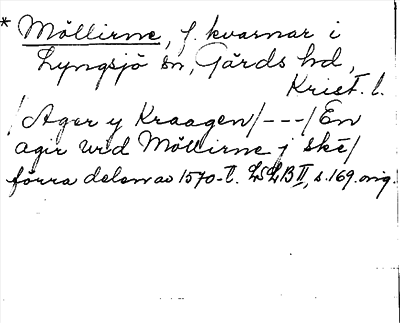 * Möllirne, f. kvarnar i
Lyngsjö sn, Gärds hd,
Krist. l.
! Ager y Kraagen/---/En
agir wed Möllirne j ske/
förra delen av 1570-t. LSLB II, s. 169. orig.